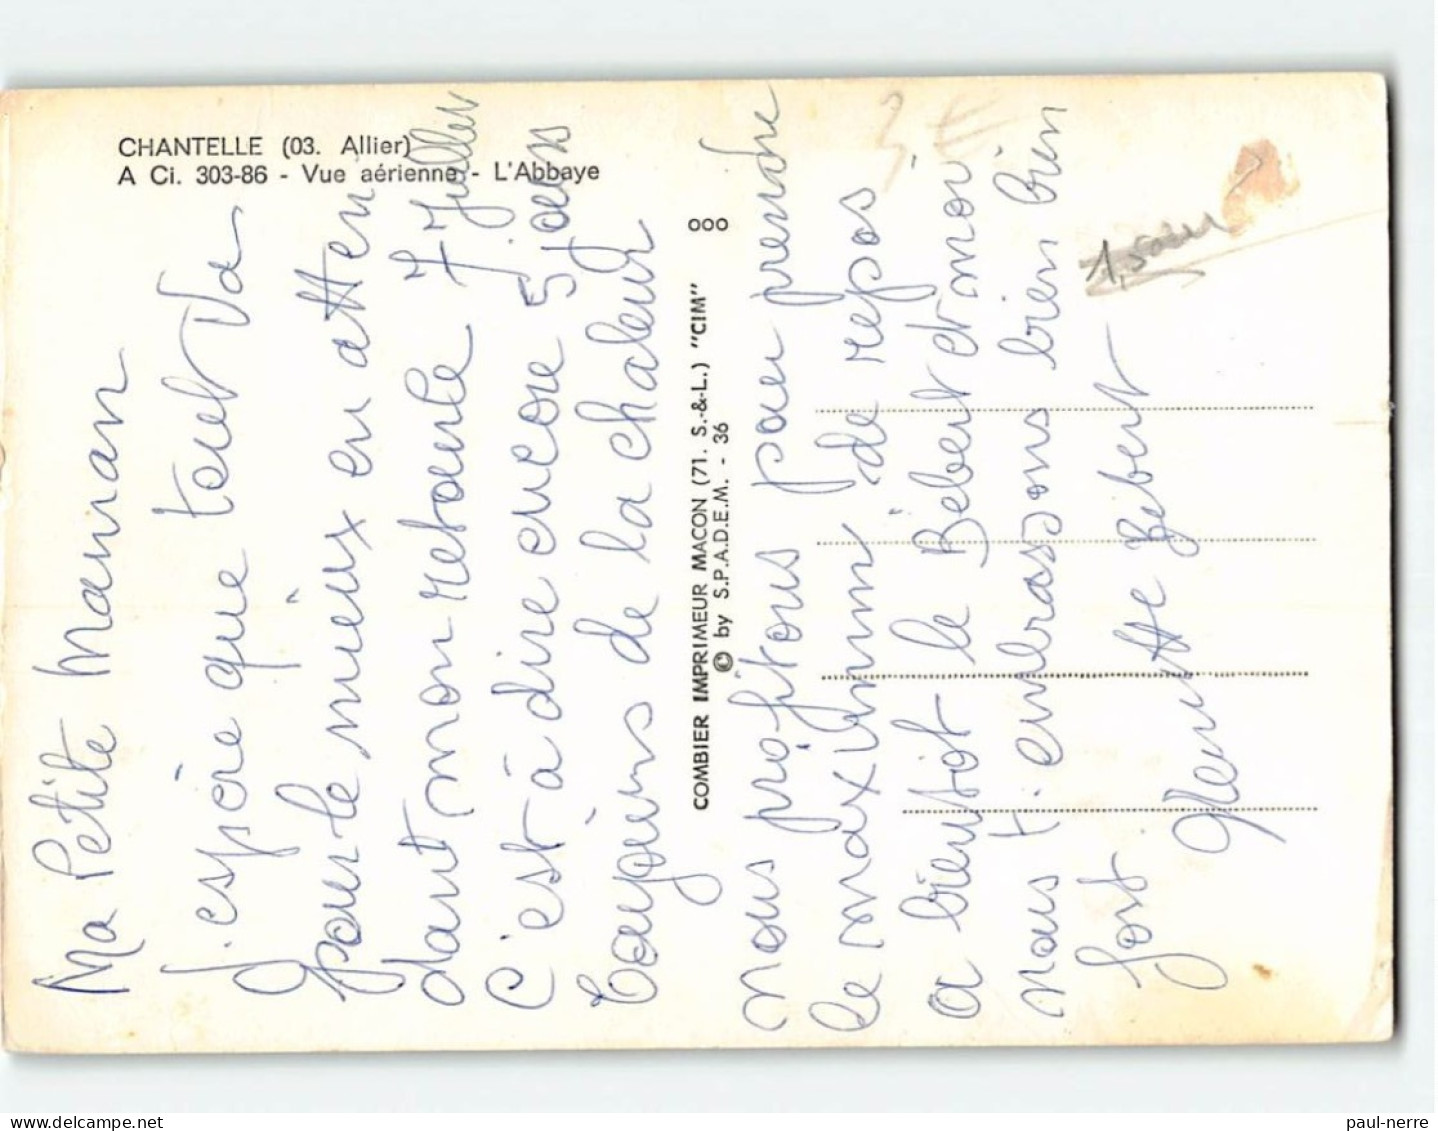 CHANTELLE (03. Allier)
A Ci. 303-86 - Vue aérienne - L'Abbaye
ooo
COMBIER IMPRIMEUR MACON (71. S.-&-L.) "CIM"
© by S.P.A.D.E.M. - 36
Ma Petite maman
J'espère que tout va
pour le mieux en atten
dant mon retour le 7 Juillet
C'est à dire encore 5 jours
toujours de la chaleur
nous profitons pour prendre
le maximum de repos.
a bientot le Bébert et moi
nous t'embrassons bien bien
fort.
Bebert
3 €
paul-nerre